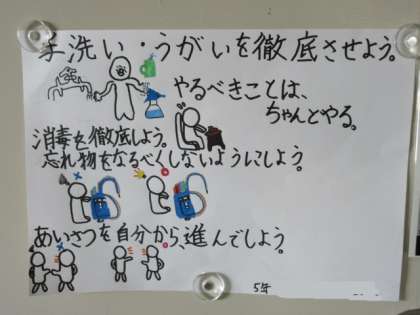 手洗い・うがいを徹底させよう。
やるべきことは、
ちゃんとやる。
消毒を徹底しよう。
忘れ物をなるべくしないようにしよう。
あいさつを自分から、進んでしよう。
5年